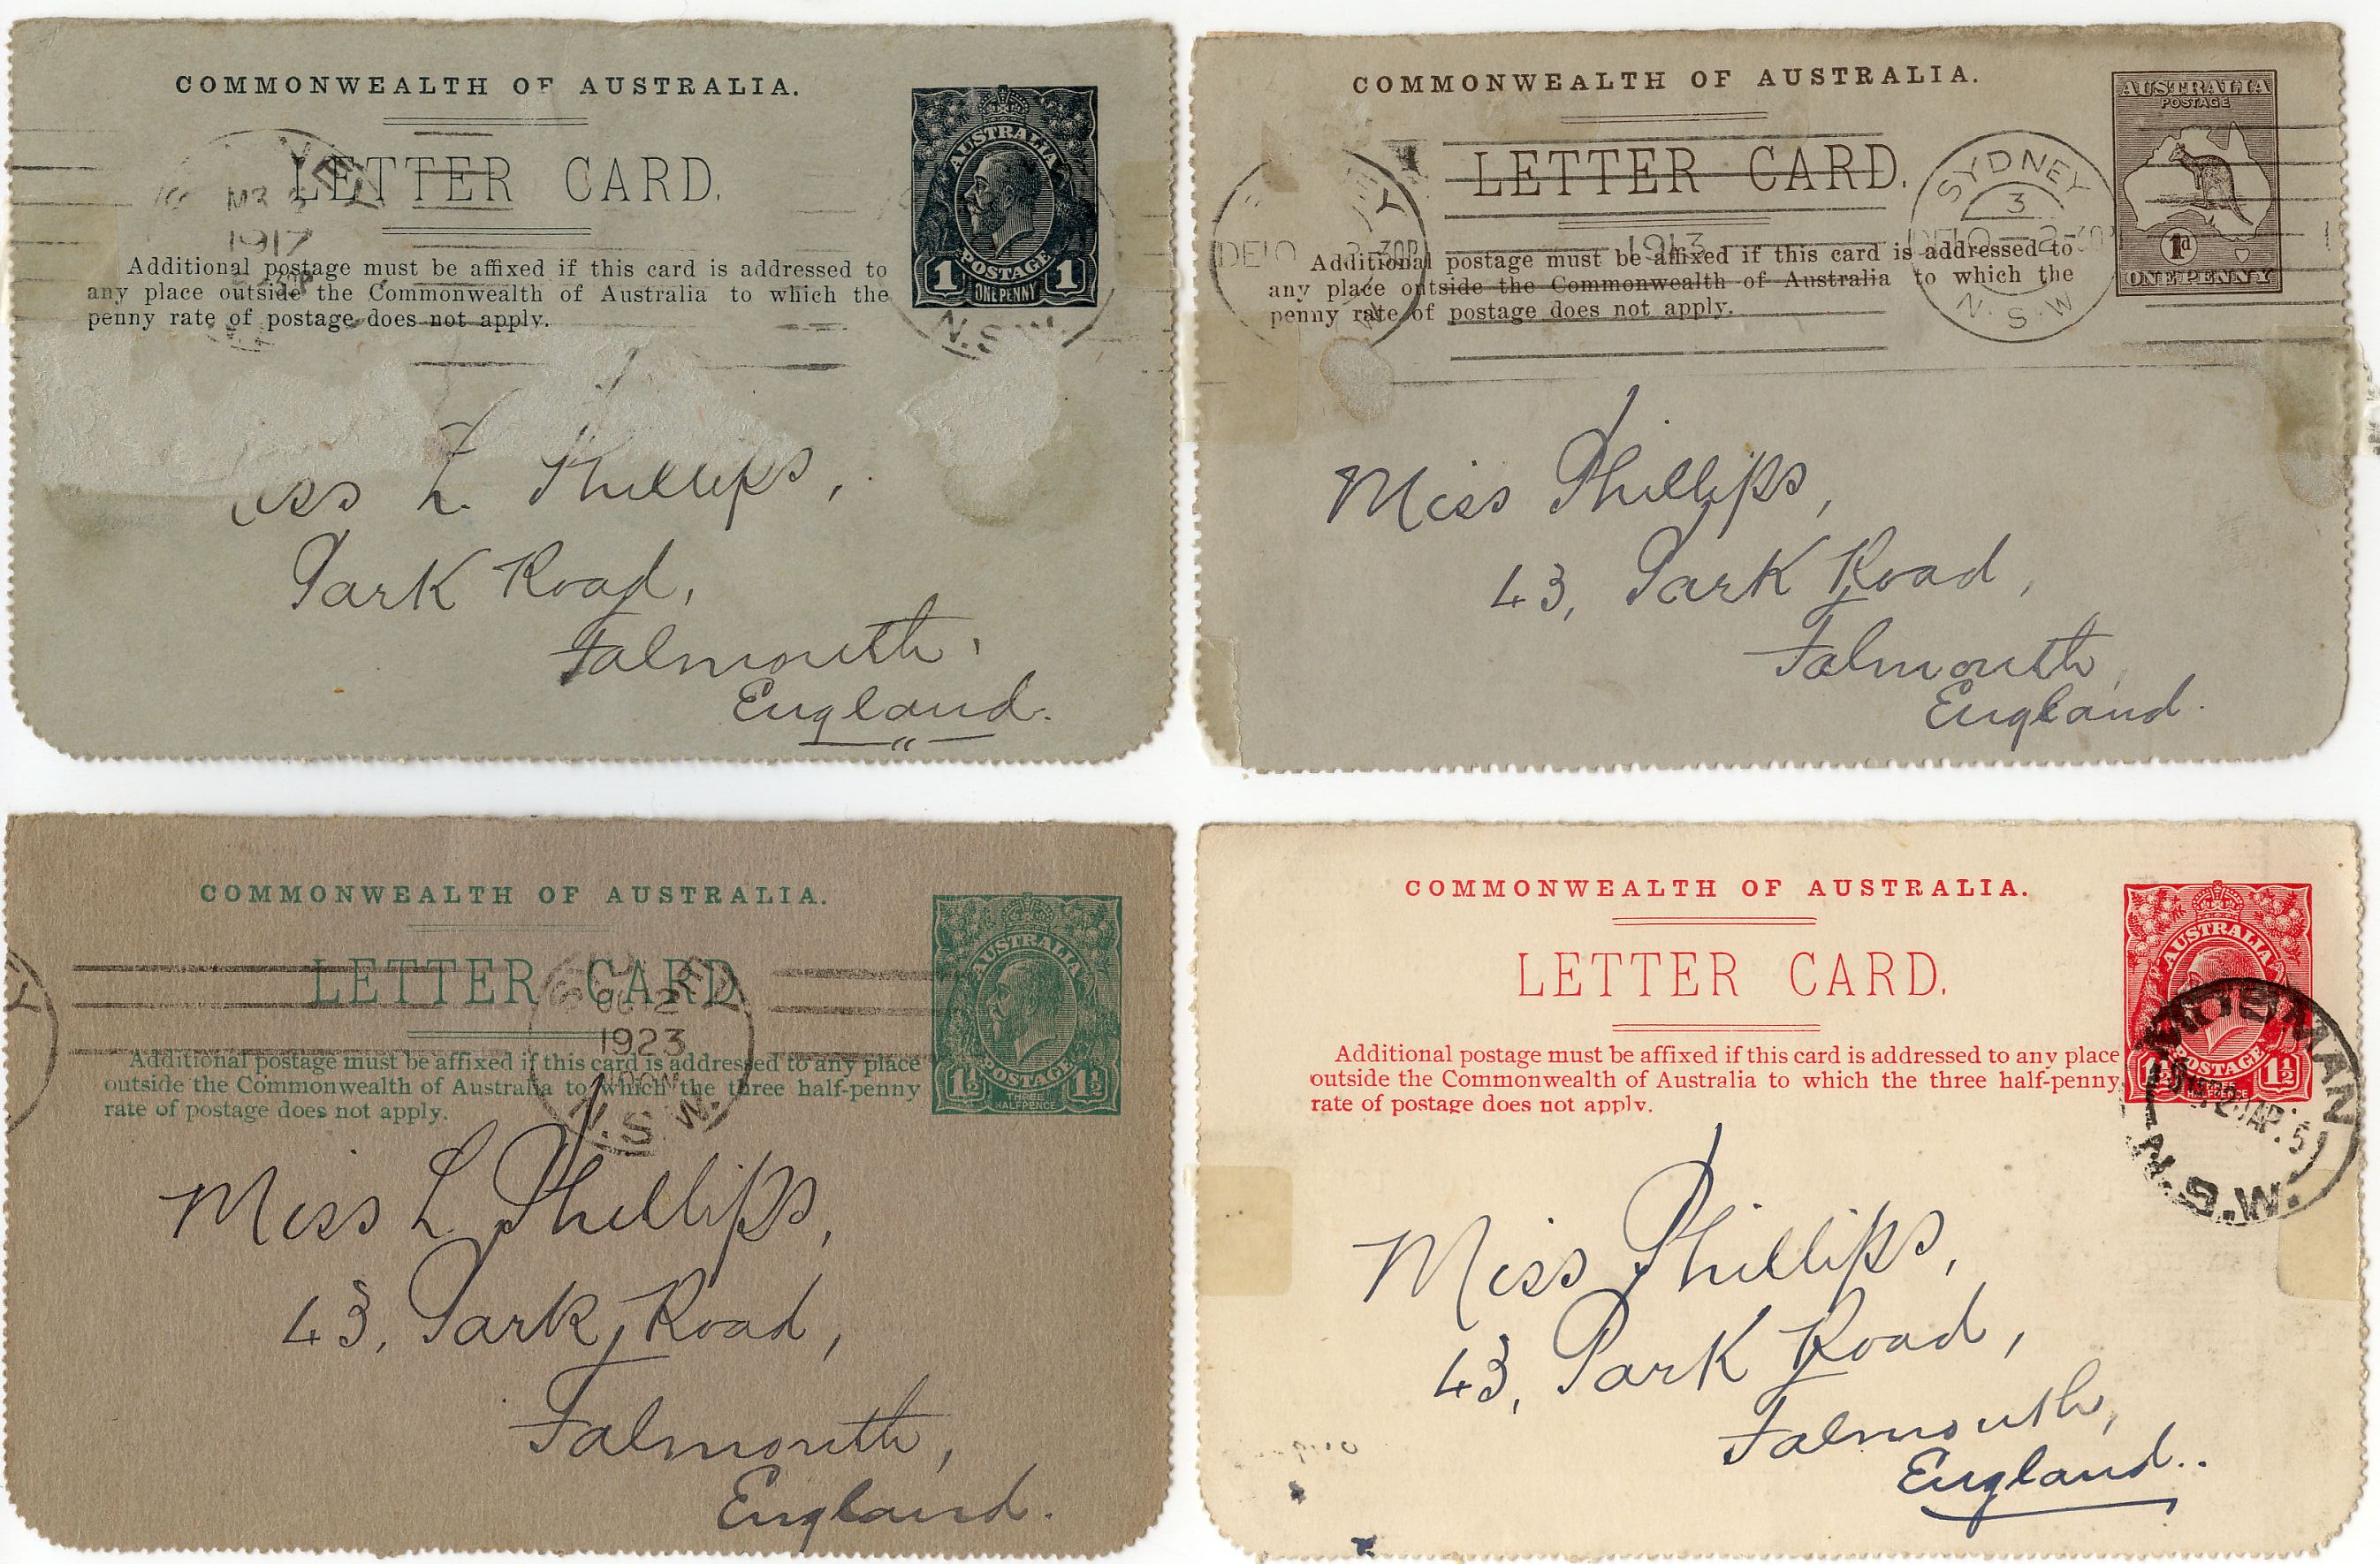 COMMONWEALTH OF AUSTRALIA.
LETTER CARD.
Additional postage must be affixed if this card is addressed to
any place outside the Commonwealth of Australia to which the
penny rate of postage does not apply.
AUSTRALIA
POSTAGE
1 ONE PENNY 1
1917
N.S.W.
L. Phillips,
Park Road,
Falmouth,
England.
COMMONWEALTH OF AUSTRALIA.
LETTER CARD.
Additional postage must be affixed if this card is addressed to
any place outside the Commonwealth of Australia to which the
penny rate of postage does not apply.
AUSTRALIA
POSTAGE
1d
ONE PENNY
DE 10 1913
SYDNEY
3
DE 10 2-30P
N.S.W
Miss Phillips,
43, Park Road,
Falmouth,
England.
COMMONWEALTH OF AUSTRALIA.
LETTER CARD
Additional postage must be affixed if this card is addressed to any place
outside the Commonwealth of Australia to which the three half-penny
rate of postage does not apply.
AUSTRALIA
POSTAGE
1½ THREE HALFPENCE 1½
1923
N.S.W.
Miss L Phillips,
43, Park Road,
Falmouth,
England.
COMMONWEALTH OF AUSTRALIA.
LETTER CARD.
Additional postage must be affixed if this card is addressed to any place
outside the Commonwealth of Australia to which the three half-penny
rate of postage does not apply.
AUSTRALIA
POSTAGE
1½ HALFPENCE 1½
MOSMAN
N.S.W.
Miss Phillips,
43, Park Road,
Falmouth,
England..